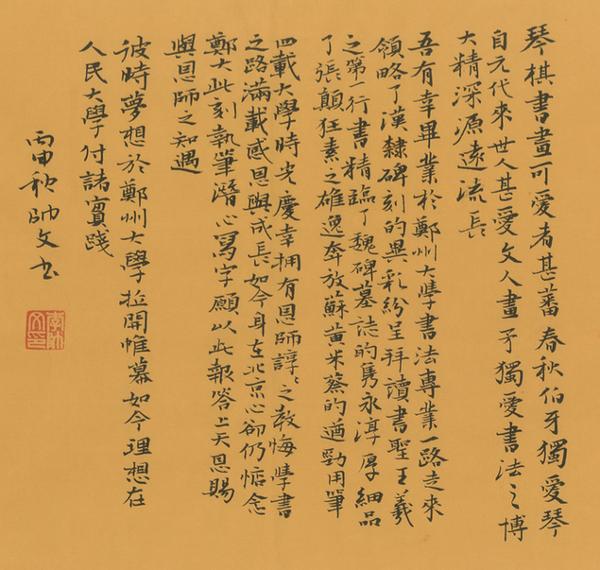 琴棋書畫可愛者甚蕃春秋伯牙獨愛琴
自元代來世人甚愛文人畫予獨愛書法之博
大精深源遠流長
吾有幸畢業於鄭州大學書法專業一路走來
領略了漢隸碑刻的異彩紛呈拜讀書聖王羲
之第一行書精臨了魏碑墓誌的雋永淳厚細品
了張顛狂素之雄逸奔放蘇黃米蔡的遒勁用筆
四載大學時光慶幸擁有恩師諄諄之教悔學書
之路滿載感恩與成長如今身在北京心卻仍惦念
鄭大此刻執筆潛心寫字願以此報答上天恩賜
與恩師之知遇
彼時夢想於鄭州大學拉開帷幕如今理想在
人民大學付諸實踐
丙申秋帥文书